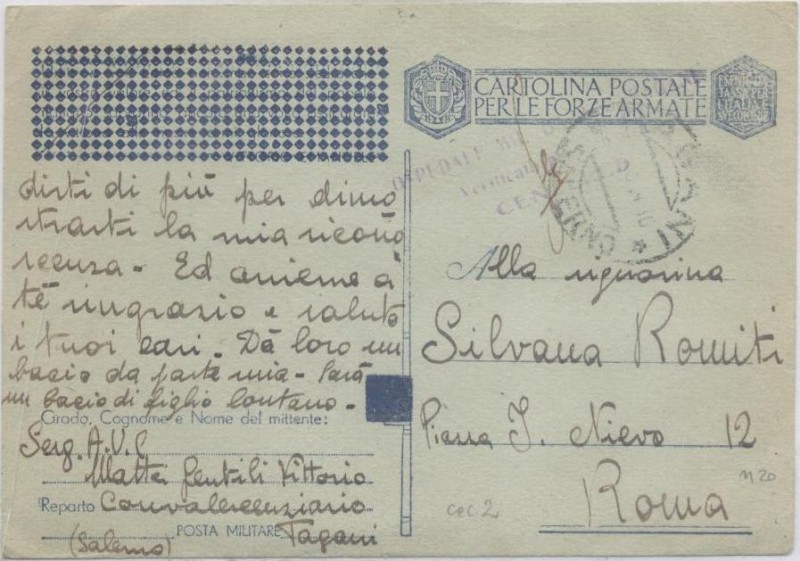 CARTOLINA POSTALE
PER LE FORZE ARMATE
OSPEDALE
CEN
PAGANI
SALERNO
dirti di più per dimo
strarti la mia ricono
scenza - Ed assieme a
te ringrazio e saluto
i tuoi cari. Dà loro un
bacio da parte mia - Sarà
un bacio di figlio lontano -
Grado, Cognome e Nome del mittente:
Serg. A.V.C
Mattei Gentili Vittorio
Reparto Convalescenziario
POSTA MILITARE Pagani
(Salerno)
Alla signorina
Silvana Romiti
Piazza I. Nievo 12
Roma
cec 2
M 20